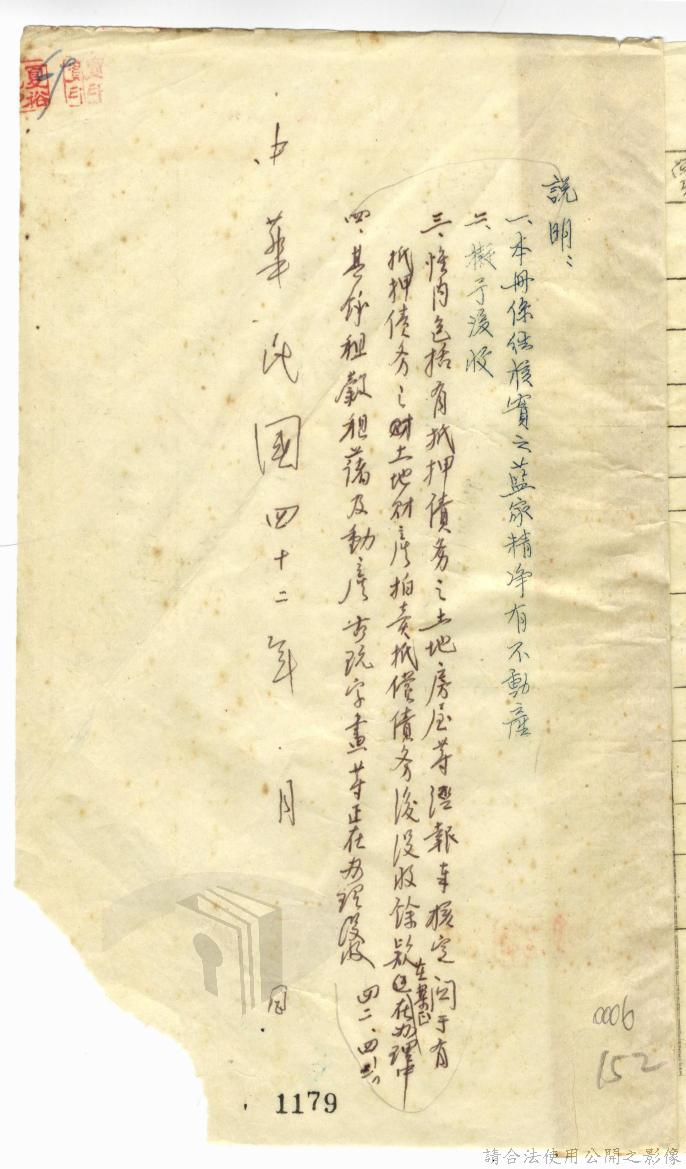 說明：
一、本冊係經核實之藍家精净有不動產
二、擬予沒收
三、惟內包括有抵押債務之土地房屋等經報奉核定関于有
抵押債务之土地財產拍賣抵償債务後沒收餘款
在办理中
四、其餘租穀租蕃及動產古玩字畫等正在办理沒收
四二、四
中華民國四十二年 月 日
夏裕
1179
0006
152
請合法使用公開之影像